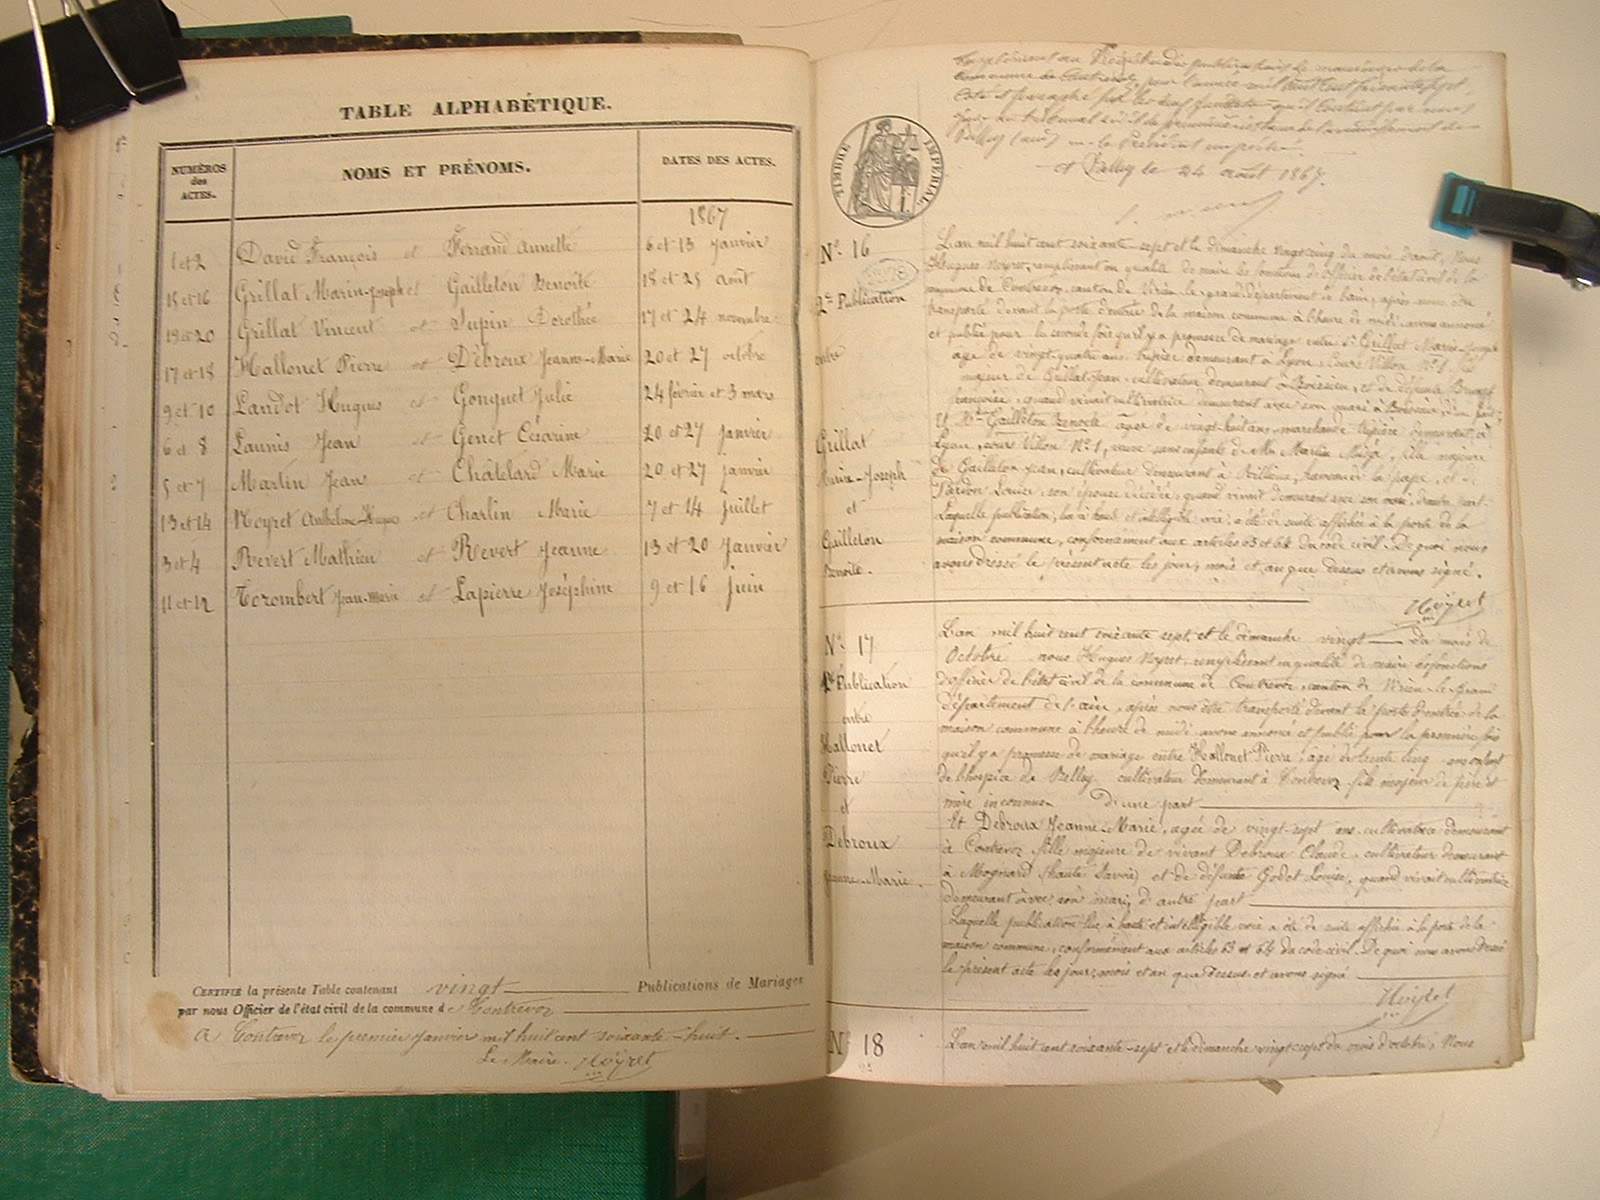 TABLE ALPHABÉTIQUE.
NUMÉROS des ACTES.
NOMS ET PRÉNOMS.
DATES DES ACTES.
1867
1 et 2 David François et Ferrand Annette 6 et 13 Janvier
15 et 16 Grillat Marin-Joseph et Gailleton Benoîte 18 et 25 août
19 et 20 Grillat Vincent et Jupin Dorothée 17 et 24 novembre
17 et 18 Hallonet Pierre et Débroux Jeanne-Marie 20 et 27 octobre
9 et 10 Landot Hugues et Gonguet Julie 24 février et 3 mars
6 et 8 Launis Jean et Genet Césarine 20 et 27 Janvier
5 et 7 Martin Jean et Châtelard Marie 20 et 27 janvier
13 et 14 Noyret Anthelme-Hugues et Charlin Marie 7 et 14 Juillet
3 et 4 Revert Mathieu et Revert Jeanne 13 et 20 Janvier
11 et 12 Torombert Jean-Marie et Lapierre Joséphine 9 et 16 juin
CERTIFIÉ la présente Table contenant vingt Publications de Mariages
par nous Officier de l'état civil de la commune de Contrevoz
A Contrevoz le premier Janvier mil huit cent soixante-huit.
Le Maire. Noyret
commune de Contrevoz pour l'année mil huit cent soixante sept
et Belley le 24 août 1867.
TIMBRE IMPÉRIAL
N° 16
2e Publication
entre
Grillat
Marin-Joseph
et
Gailleton
Benoîte.
L'an mil huit cent soixante-sept et le dimanche vingt cinq du mois d'août, Nous
Hugues Noyret, remplissant en qualité de maire les fonctions d'officier de l'état civil de la
commune de Contrevoz, canton de Virieu-le-grand département de l'ain, après nous être
transporté devant la porte d'entrée de la maison commune à l'heure de midi avons annoncé
et publié pour la seconde fois qu'il y a promesse de mariage entre Sr Grillat Marin-Joseph
âgé de vingt-quatre ans demeurant à Lyon, Cours Villon N° 1, fils
majeur de Grillat Jean, cultivateur demeurant à et de défunte
françoise, quand vivait cultivatrice demeurant avec son mari à d'une part
Et Mme Gailleton Benoîte âgée de vingt-huit ans, marchande demeurant à
Lyon, cours Villon N° 1, veuve sans enfants de Mr Martin fille majeure
de Gailleton Jean, cultivateur demeurant à Rillieux, hameau de la pape, et de
Pardon Louise, son épouse décédée, quand vivait demeurant avec son mari, d'autre part.
Laquelle publication, lue à haute et intelligible voix, a été de suite affichée à la porte de la
maison commune, conformément aux articles 63 et 64 du code civil. De quoi nous
avons dressé le présent acte les jour, mois et an que dessus et avons signé.
Noyret
N° 17
1re Publication
entre
Hallonet
Pierre
et
Debroux
Jeanne-Marie.
L'an mil huit cent soixante sept, et le dimanche vingt du mois de
Octobre nous Hugues Noyret, remplissant en qualité de maire les fonctions
d'officier de l'état civil de la commune de Contrevoz, canton de Virieu-le-Grand
département de l'ain, après nous être transporté devant la porte d'entrée de la
maison commune à l'heure de midi avons annoncé et publié pour la première fois
qu'il y a promesse de mariage entre Hallonet Pierre, âgé de trente cinq ans enfant
de l'hospice de Belley cultivateur demeurant à Contrevoz fils majeur de père et
mère inconnus. D'une part
Et Debroux Jeanne-Marie, agée de vingt-sept ans. cultivatrice demeurant
à Contrevoz fille majeure de vivant Debroux Claude, cultivateur demeurant
à Mognard (haute Savoie) et de défunte Godet Louise, quand vivait cultivatrice
demeurant avec son mari, d'autre part
Laquelle publication lue à haute et intelligible voix a été de suite affichée à la porte de la
maison commune, conformément aux articles 63 et 64 du code civil. De quoi nous avons dressé
le présent acte les jour, mois et an que dessus et avons signé
Noyret
N° 18
L'an mil huit cent soixante-sept et le dimanche vingt-sept du mois d'octobre, Nous